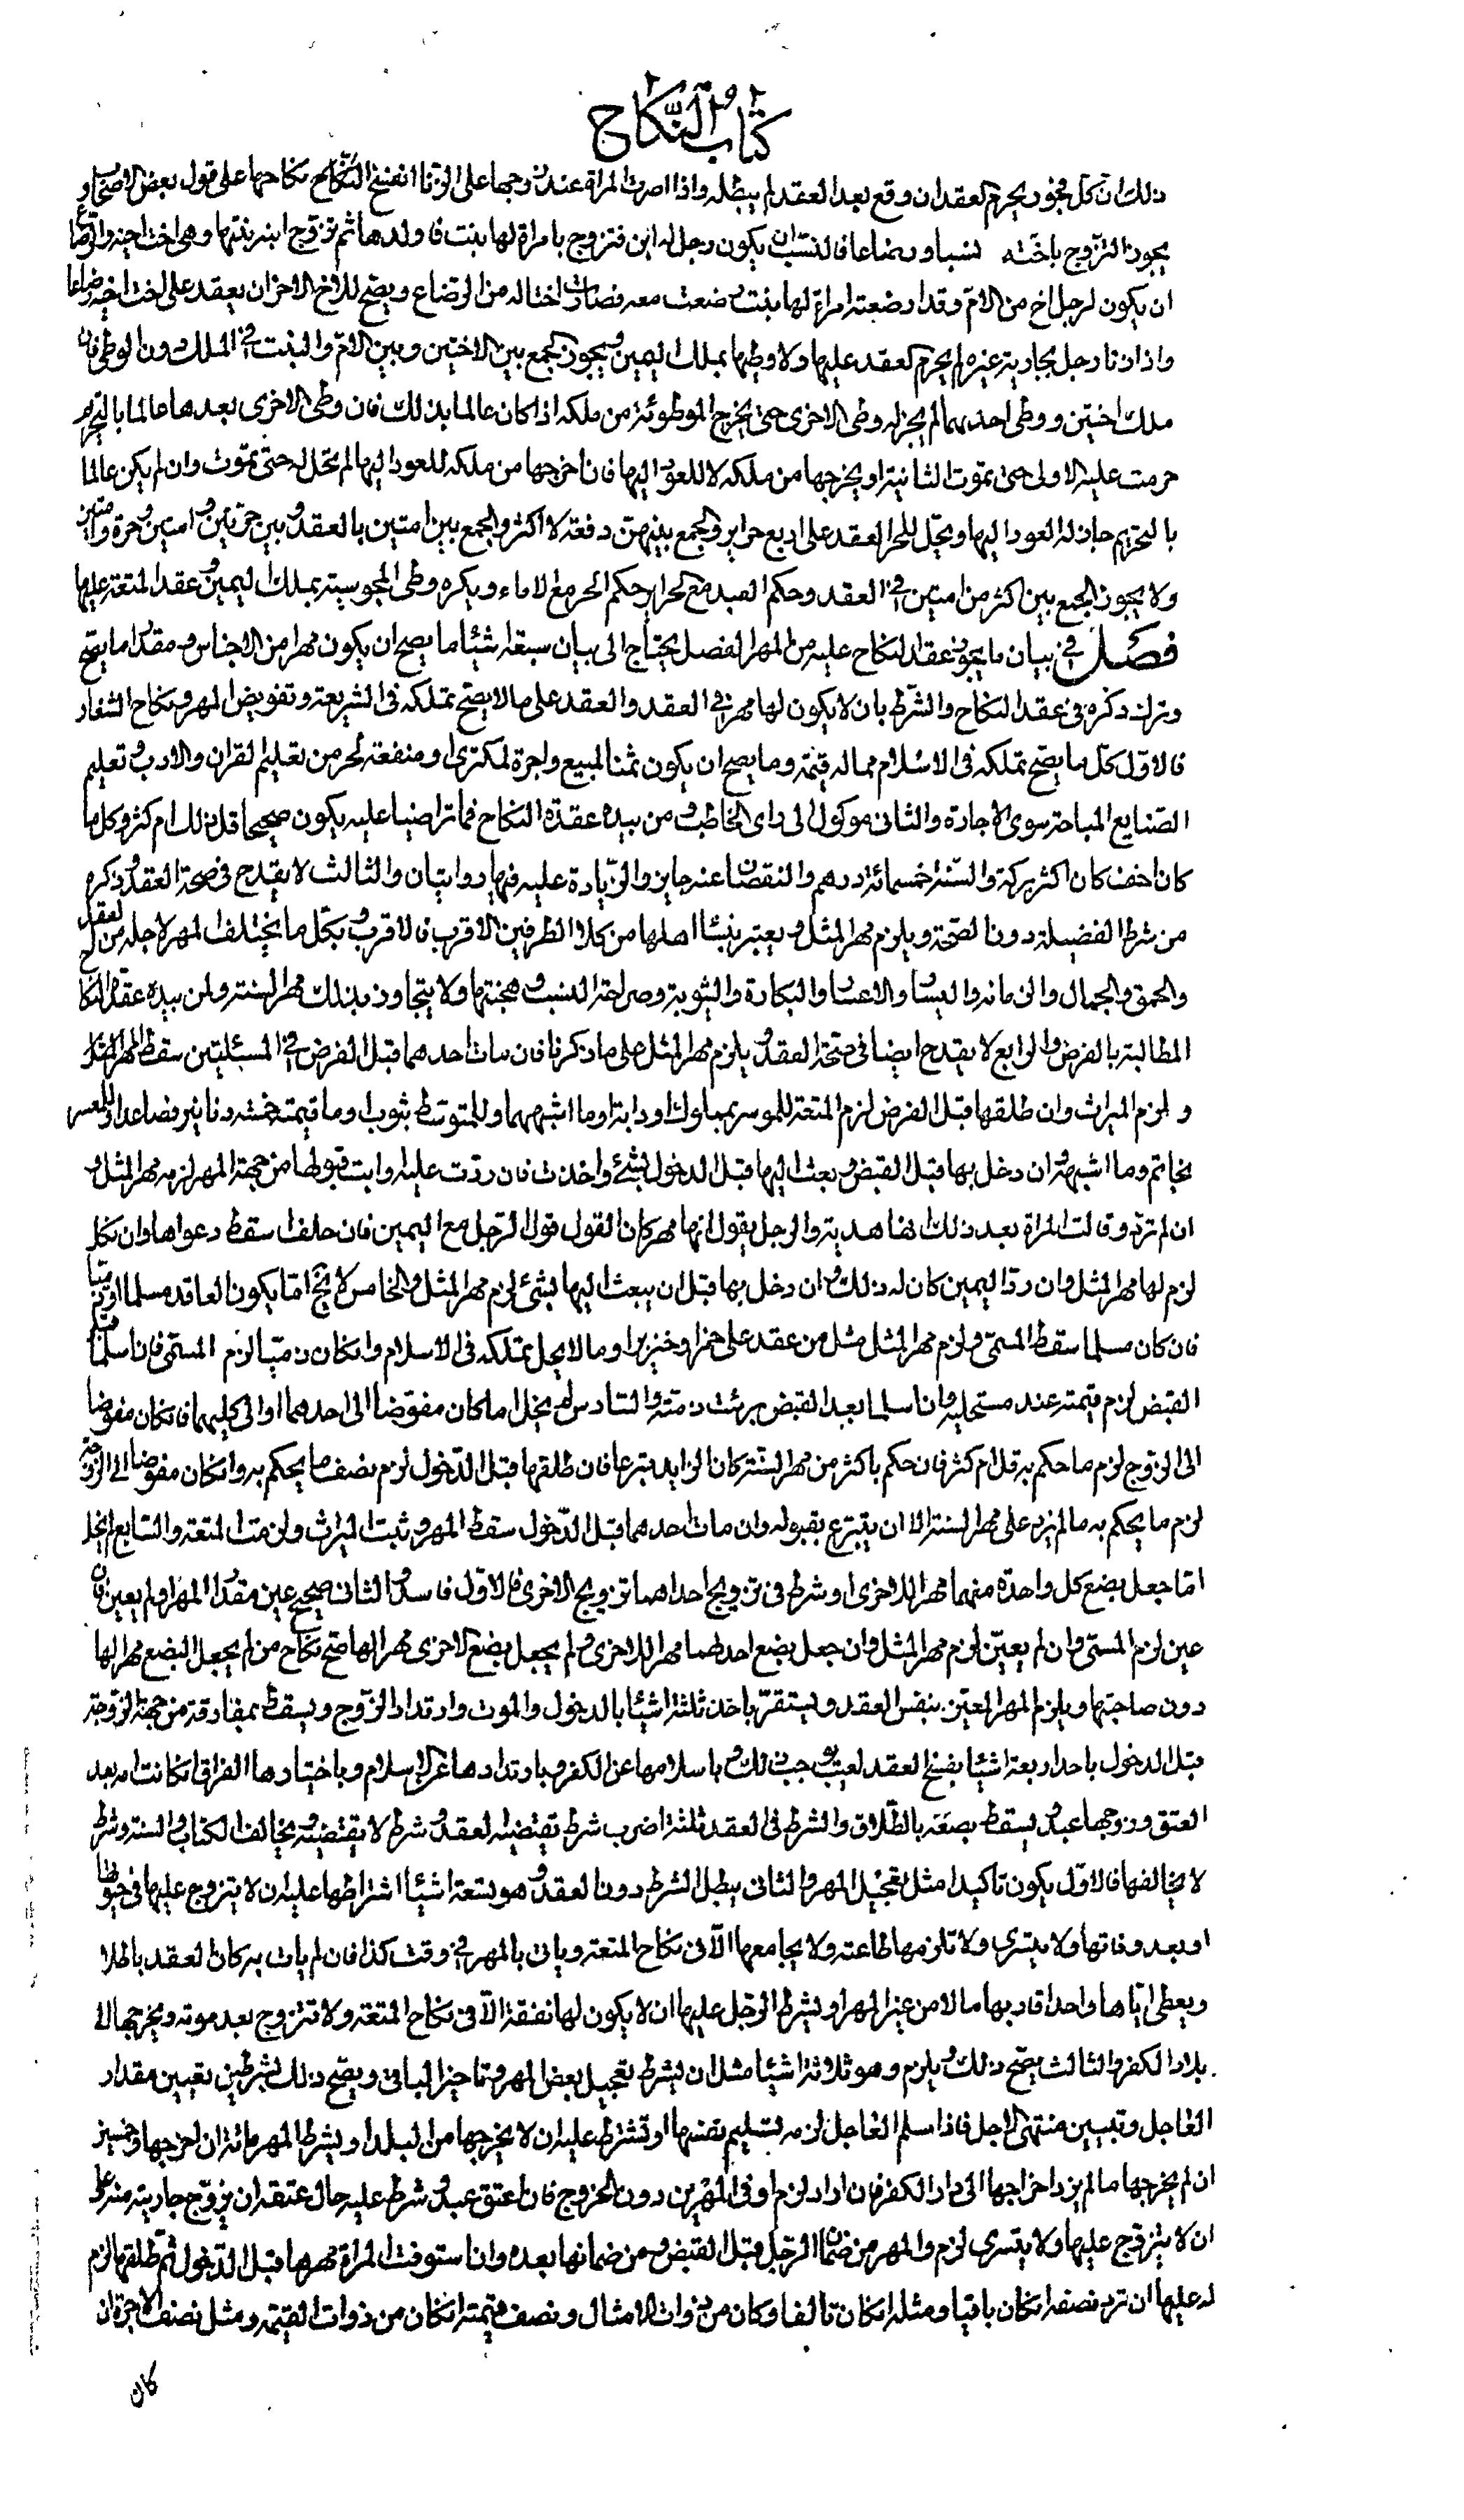 كتاب النكاح
ذلك ان كل فجور يحرم العقد ان وقع بعد العقد لم يبطله واذا اصرت المراة عند زوجها على الزنا انفسخ النكاح نكاحها على قول بعض الاصحاب و
يجوز التزوج باخت اخيه نسبا ورضاعا فالنسب ان يكون رجل له ابن فتزوج بامراة لها بنت فاولدها ثم تزوج ابنه بنتها وهى اخت اخيه والرضاع
ان يكون لرجل اخ من الام وقد ارضعته امراة لها بنت رضعت معه فصارت اختا له من الرضاع ويصح للاخ الاخر ان يعقد على اخت اخيه رضاعا
واذا زنا رجل بجارية غيره لم يحرم العقد عليها ولا وطيها بملك اليمين ويجوز الجمع بين الاختين وبين الام والبنت فى الملك دون الوطى فان
ملك اختين ووطى احدهما لم يجز له وطى الاخرى حتى يخرج الموطوئة من ملكه اذا كان عالما بذلك فان وطى الاخرى بعدها عالما بالتحريم
حرمت عليه الاولى حتى تموت الثانية او يخرجها من ملكه لا للعود اليها فان اخرجها من ملكه للعود اليها لم تحل له حتى تموت وان لم يكن عالما
بالتحريم جاز له العود اليها ويحل للحر العقد على اربع حراير والجمع بينهن دفعة لا اكثر والجمع بين امتين بالعقد وبين حرتين وامتين وحرة وامتين
ولا يجوز الجمع بين اكثر من امتين فى العقد وحكم العبد مع الحراير حكم الحر مع الاماء ويكره وطى المجوسية بملك اليمين وعقد المتعة عليها
فصل فى بيان ما يجوز عقد النكاح عليه من المهر الفصل يحتاج الى بيان سبعة اشيا ما يصح ان يكون مهرا من الاجناس ومقدار ما يصح
وترك ذكره فى عقد النكاح والشرط بان لا يكون لها مهر فى العقد والعقد على ما لا يصح تملكه فى الشريعة وتفويض المهر ونكاح الشغار
فالاول كل ما يصح تملكه فى الاسلام مما له قيمة وما يصح ان يكون ثمنا لمبيع واجرة لمكترى ومنفعة لحر من تعليم القران والادب وتعليم
الصنايع المباحة سوى الاجارة والثانى موكول الى راى الخاطب ومن بيده عقدة النكاح فما تراضيا عليه يكون صحيحا قل ذلك ام كثر وكل ما
كان اخف كان اكثر بركة والسنة خمسمائة درهم والنقصان عنه جايز والزيادة عليه فيها روايتان والثالث لا يقدح فى صحة العقد وذكره
من شرط الفضيلة دون الصحة ويلزم مهر المثل ويعتبر بنسا اهلها من كلا الطرفين الاقرب فالاقرب وبكل ما يختلف المهر لاجله من العقل
والحمق والجمال والزمانه واليسار والاعسار والبكارة والثيوبة وصراحة النسب وهجنتها ولا يتجاوز بذلك مهر السنة ولمن بيده عقدة النكا
المطالبة بالفرض والرابع لا يقدح ايضا فى صحة العقد ويلزم مهر المثل على ما ذكرنا فان مات احدهما قبل الفرض فى المسئلتين سقط المهر المثل
ولزم الميراث وان طلقها قبل الفرض لزم المتعة للموسر بمملوك او دابة او ما اشبههما وللمتوسط بثوب او ما قيمته خمسة دنانير فصاعدا وللمعسر
بخاتم وما اشبهه وان دخل بها قبل القبض وبعث اليها قبل الدخول بشئ واخذت فان ردت عليه وابت قبولها من جهة المهر لزمه مهر المثل و
ان لم ترد وقالت المراة بعد ذلك انها هدية والرجل يقول انها مهر كان القول قول الرجل مع اليمين فان حلف سقط دعواها وان نكل
لزم لها مهر المثل وان رد اليمين كان له ذلك وان دخل بها قبل ان يبعث اليها بشئ لزم مهر المثل والخامس لا يخ اما يكون العاقد مسلما او ذميا
فان كان مسلما سقط المسمى ولزم مهر المثل مثل من عقد على خمر او خنزير او ما لا يحل تملكه فى الاسلام وان كان ذميا لزم المسمى فان اسلما قبل
القبض لزم قيمته عند مستحليه وان اسلما بعد القبض برئت ذمته والسادس لم يخل اما كان مفوضا الى احدهما او الى كليهما فان كان مفوضا
الى الزوج لزم ما حكم به قل ام كثر فان حكم باكثر من مهر السنة كان الزايد تبرعا فان طلقها قبل الدخول لزم نصف ما يحكم به وان كان مفوضا الى الزوجة
لزم ما يحكم به ما لم يزد على مهر السنة الا ان يتبرع بقبوله وان مات احدهما قبل الدخول سقط المهر وثبت الميراث ولزمت المتعة والسابع لم يخل
اما جعل بضع كل واحدة منهما مهرا للاخرى او شرط فى تزويج احداهما تزويج الاخرى فالاول فاسد والثانى صحيح عين مقدار المهر او لم يعين فان
عين لزم المسمى وان لم يعين لزم مهر المثل وان جعل بضع احدهما مهرا للاخرى ولم يجعل بضع الاخرى مهرا لها صح نكاح من لم يجعل البضع مهرا لها
دون صاحبتها ويلزم المهر المعين بنفس العقد ويستقر باحد ثلثة اشيا بالدخول والموت وارتداد الزوج ويسقط بمفارقة من جهة الزوجة
قبل الدخول باحد اربعة اشيا بفسخ العقد لعيب يوجب ذلك وباسلامها عن الكفر وبارتدادها عن الاسلام وباختيارها الفراق ان كانت امة بعد
العتق وزوجها عبد ويسقط نصفه بالطلاق والشرط فى العقد ثلثة اضرب شرط يقتضيه العقد وشرط لا يقتضيه ويخالف الكتاب والسنة وشرط
لا يخالفها فالاول يكون تاكيدا مثل تعجيل المهر والثانى يبطل الشرط دون العقد وهو تسعة اشيا اشتراطها عليه ان لا يتزوج عليها فى حيوتها
او بعد وفاتها ولا يتسرى ولا تلزمها طاعته ولا يجامعها الا فى نكاح المتعة وياتى بالمهر فى وقت كذا فان لم يات به كان العقد باطلا
ويعطى اباها واحدا قاربها مالا من غير المهر او يشرط الرجل عليها ان لا يكون لها نفقة الا فى نكاح المتعة ولا تتزوج بعد موته ويخرجها الى
بلاد الكفر والثالث يصح ذلك ويلزم وهو ثلاثة اشيا مثل ان يشرط تعجيل بعض المهر وتاخير الباقى ويصح ذلك بشرطين تعيين مقدار
العاجل وتبيين منتهى الاجل فاذا سلم العاجل لزمه تسليم نفسها او تشترط عليه ان لا يخرجها من البلد او يشرط المهر مائة ان اخرجها وخمسين
ان لم يخرجها ما لم يرد اخراجها الى دار الكفر فان اراد لزم اوفى المهرين دون الخروج فان اعتق عبده وشرط عليه حال عتقه ان يزوج جاريته منه على
ان لا يتزوج عليها ولا يتسرى لزم والمهر من ضمان الرجل قبل القبض ومن ضمانها بعده وان استوفت المراة مهرها قبل الدخول ثم طلقها لزم
له عليها ان ترد نصفه ان كان باقيا ومثله ان كان تالفا وكان من ذوات الامثال ونصف قيمته ان كان من ذوات القيمة ومثل نصف الاجرة ان
كان